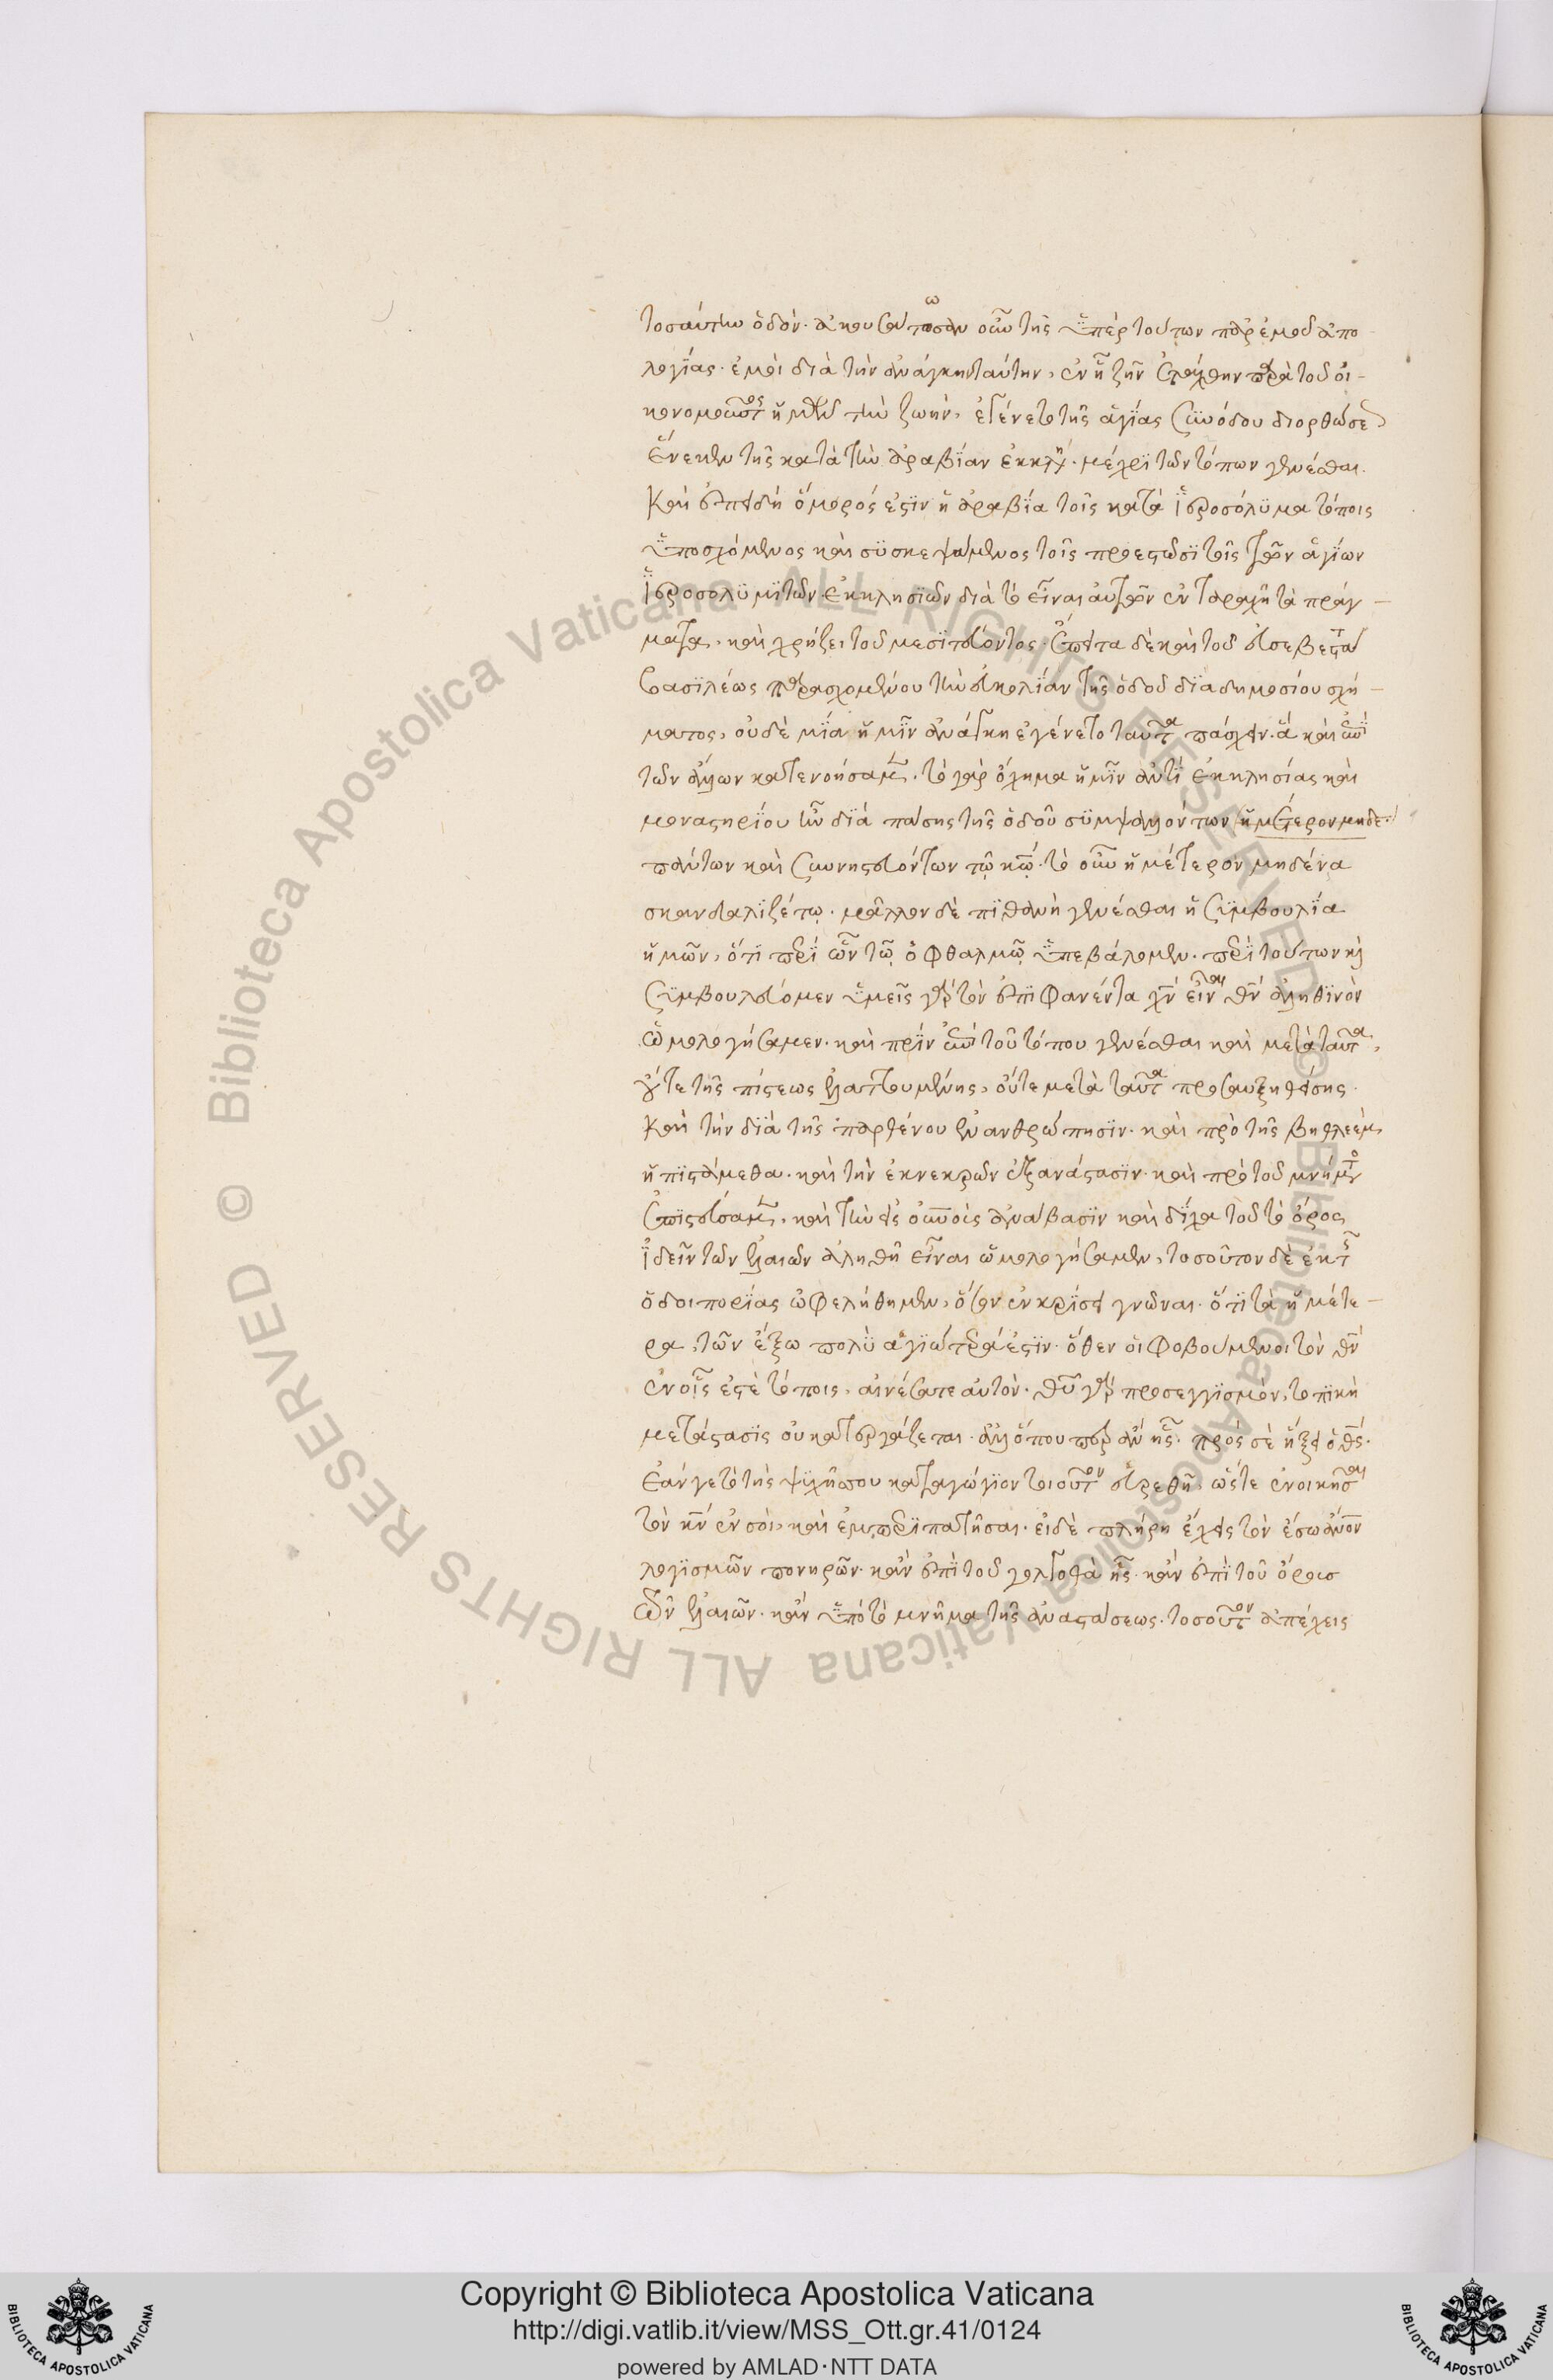 τοσαύτην ὁδόν. ἀκουσάτωσαν οὖν τῆς ὑπὲρ τούτων παρ ἐμοῦ ἀπο
λογίας. ἐμοὶ διὰ τὴν ἀνάγκην ταύτην, ἐν ᾗ ζῆν ἐτάχθην παρὰ τοῦ οἰ-
κονομοῦντος ἡμῶν τὴν ζωὴν, ἐγένετο τῆς ἁγίας συνόδου διορθώσε
ἕνεκεν τῆς κατὰ τὴν ἀραβίαν ἐκκλη. μέχρι τῶν τόπων γενέσθαι.
Καὶ ἐπειδὴ ὅμορός ἐστιν ἡ ἀραβία τοῖς κατὰ ἱεροσόλυμα τόποις
ὑποσχόμενος καὶ συσκεψάμενος τοῖς προεστῶσι τοῖς τῶν ἁγίων
ἱεροσολυμιτῶν ἐκκλησιῶν διὰ τὸ εἶναι αὐτῶν ἐν ταραχῆ τὰ πράγ-
ματα, καὶ χρήζει τοῦ μεσιτεύοντος. ἔπειτα δὲ καὶ τοῦ εὐσεβεστάτου
βασιλέως παρασχομένου τὴν εὐκολίαν τῆς ὁδοῦ διὰ δημοσίου σχή-
ματος, οὐδὲ μία ἡμῖν ἀνάγκη ἐγένετο ταῦτα πάσχειν. ἃ καὶ ἐπὶ
τῶν ἄλλων κατενοήσαμεν. τὸ γὰρ ὄχημα ἡμῖν ἀντὶ ἐκκλησίας καὶ
μοναστηρίου ἦν διὰ πάσης τῆς ὁδοῦ συμψαλλόντων ἡμέτερον μηδε.
πάντων καὶ συννηστευόντων τῷ κῷ. τὸ οὖν ἡμέτερον μηδένα
σκανδαλιζέτω. μᾶλλον δὲ πιθανὴ γενέσθαι ἡ συμβουλία
ἡμῶν, ὅτι περὶ ὧν τῷ ὀφθαλμῷ ὑπεβάλομεν. περὶ τούτων καὶ
συμβουλεύομεν ὑμεῖς γὰρ τὸν ἐπιφανέντα χν εἶναι θν ἀληθινὸν
ὡμολογήσαμεν. καὶ πρὶν ἐπὶ τοῦ τόπου γενέσθαι καὶ μετὰ ταῦτα,
οὔτε τῆς πίστεως ἐλαττουμένης, οὔτε μετὰ ταῦτα προσαυξηθείσης.
Καὶ τὴν διὰ τῆς παρθένου ἐνανθρώπησιν. καὶ πρὸ τῆς βηθλεέμ,
ἠπιστάμεθα. καὶ τὴν ἐκνεκρῶν ἐξανάστασιν. καὶ πρὸ τοῦ μνήματος
ἐπιστεύσαμεν. καὶ τὴν εἰς οὐνοὺς ἀνάβασιν καὶ δίχα τοῦ τὸ ὄρος
ἰδεῖν τῶν ἐλαιῶν ἀληθῆ εἶναι ὡμολογήσαμεν, τοσοῦτον δὲ ἐκ τῆς
ὁδοιπορίας ὠφελήθημεν, ὅσον ἐν κρίσει γνῶναι. ὅτι τὰ ἡμέτε-
ρα, τῶν ἔξω πολὺ ἁγιώτερά ἐστιν. ὅθεν οἱ φοβούμενοι τὸν θν
ἐν οἷς ἐστὲ τόποις, αἰνέσατε αὐτὸν. θυ γὰρ προσεγγισμὸν, τοπικὴ
μετάστασις οὐ κατεργάζεται. ἀλλ ὅπου περ ἂν ᾖς. πρός σὲ ἥξει ὁ θς.
ἐάν γε τὸ τῆς ψυχῆς σου καταγώγιον τοιοῦτον εὑρεθῆ, ὥστε ἐνοικῆσαι
τὸν κν ἐν σοὶ, καὶ ἐμπεριπατῆσαι. εἰ δὲ πλήρη ἔχεις τὸν ἔσω ἄνον
λογισμῶν πονηρῶν. κἂν ἐπὶ τοῦ γολγοθὰ ᾖς. κἂν ἐπὶ τοῦ ὄρους
τῶν ἐλαιῶν. κἂν ὑπὸ τὸ μνῆμα τῆς ἀναστάσεως. τοσοῦτον ἀπέχεις
Copyright © Biblioteca Apostolica Vaticana
http://digi.vatlib.it/view/MSS_Ott.gr.41/0124
powered by AMLAD·NTT DATA
© Biblioteca Apostolica Vaticana ALL RIGHTS RESERVED
© Biblioteca Apostolica Vaticana ALL RIGHTS RESERVED
BIBLIOTECA APOSTOLICA VATICANA
BIBLIOTECA APOSTOLICA VATICANA